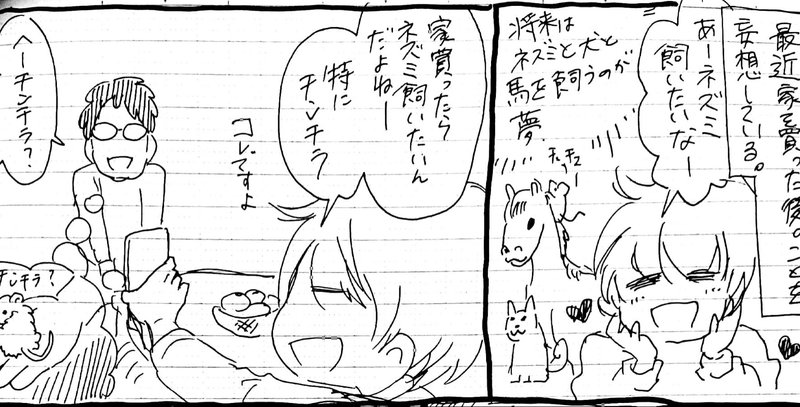 最近家を買った後のことを
妄想している。
あーネズミ
飼いたいなー
将来は
ネズミと犬と
馬を飼うのが
夢
チュッチュー
家買ったら
ネズミ飼いたいん
だよねー
特に
チンチラ
コレですよ
へーチンチラ?
チンチラ?